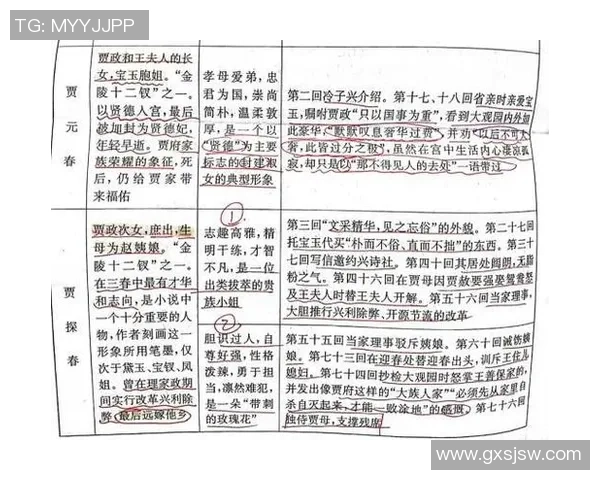 TG: MYYJJPP
贾元春
贾政和王夫人的长
女,宝玉胞姐。“金
陵十二钗”之一。
以贤德人宫,最后
被加封为贤德妃,
年轻早逝。贾府家
族荣耀的象征,死
后,仍给贾家带
来福佑
孝母爱弟,忠
君为国,崇尚
简朴,温柔敦
厚,是一个以
“贤德”为主要
标志的封建淑
女的典型形象
第二回冷子兴介绍。第十七、十八回省亲时亲爱宝
玉,嘱咐贾政“只以国事为重”,看到大观园内外如
此豪华,“默默叹息奢华过费”,并劝“以后不可太
奢,此皆过分之极”,虽然在宫中生活内心凄凉孤
寂,却只是以“那不得见人的去处”一语带过
贾探春
贾政次女,庶出,生
母为赵姨娘。“金
陵十二钗”之一。
在三春中最有才华
和志向,是小说中
一个十分重要的人
物,作者刻画这一
形象所用笔墨,仅
次于黛玉、宝钗、凤
姐。曾在理家政期
间实行改革兴利除
弊,最后远嫁他乡
①
志趣高雅,精
明干练,才智
不凡,是一位
出类拔萃的贵
族小姐
②
胆识过人,自
尊好强,性格
泼辣,勇于担
当,凛然难犯,
是一朵“带刺
的玫瑰花”
第三回“文采精华,见之忘俗”的外貌。第二十七回
托宝玉代买“朴而不俗、直而不拙”的东西。第三十
七回写信邀约兴诗社。第四十回其居处阔朗,无脂
粉之气。第四十六回在贾母因贾赦要强娶鸳鸯怒
及王夫人时替王夫人开解。第五十六回当家理事,
大胆推行兴利除弊、开源节流的改革
第五十五回当家理事驳斥姨娘。第六十回诚饬姨
娘。第七十三回在迎春处替迎春出头,训斥王住儿
媳妇。第七十四回抄检大观园时怒掌王善保家的,
并发出像贾府这样的“大族人家”“必须先从家里自
杀自灭起来,才能一败涂地”的感慨。第七十六回
独侍贾母,支撑残席
www.gxsjsw.com